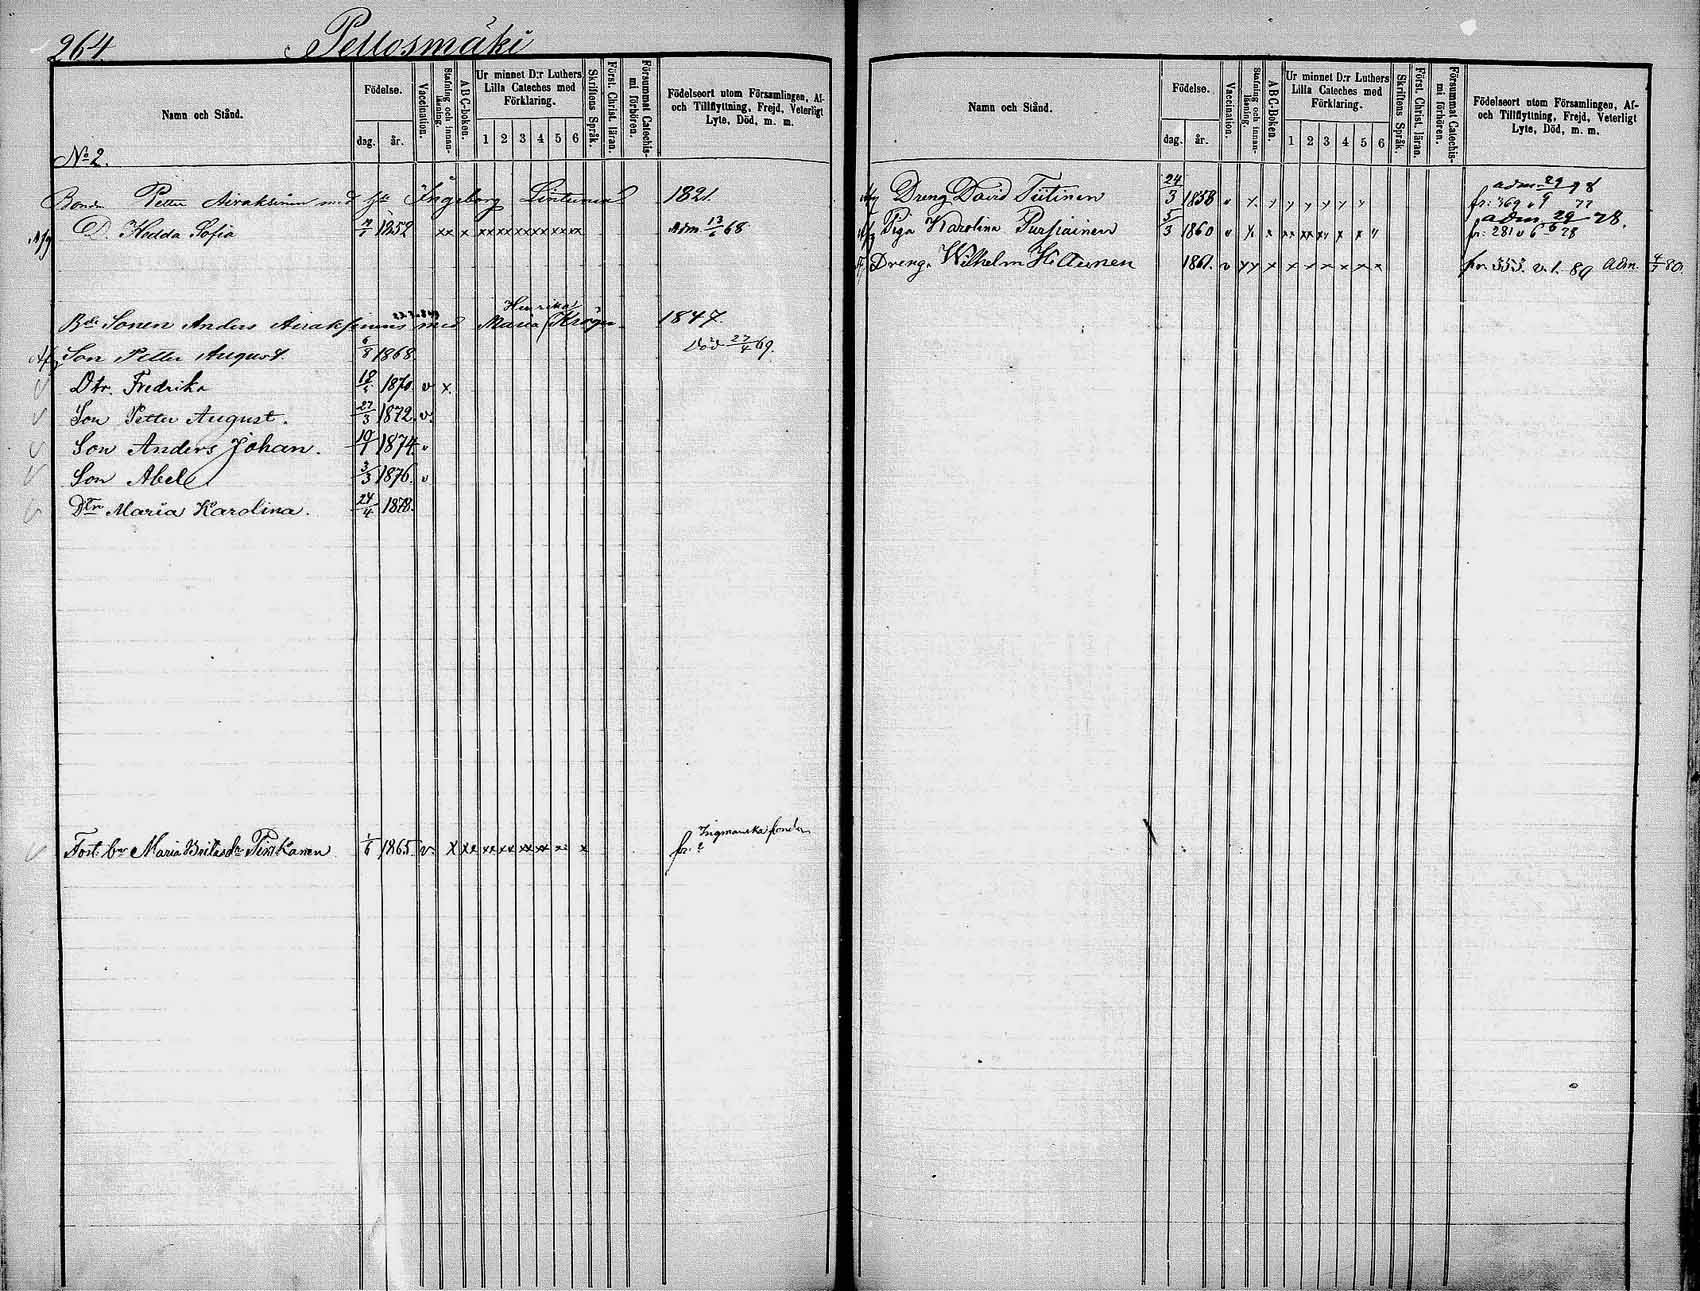 264. Pellosmäki
Namn och Stånd.
Födelse.
dag. år.
Vaccination.
Stafning och innanläsning.
A B C-boken.
Ur minnet D:r Luthers Lilla Cateches med Förklaring.
1 2 3 4 5 6
Skriftens Språk.
Först. Christ. läran.
Försummat Catechismi förhören.
Födelseort utom Församlingen, Af- och Tillflyttning, Frejd, Veterligt Lyte, Död, m. m.
No 2.
Bonde Petter Airaksinen med Ingeborg 1821.
Afg D. Hedda Sofia 1852 xx x xx xx xx xx xx xx Adm 13/6 68
Henrika
Bde Sonen Anders Airaksinen med Maria Kröger 1847.
Afg Son Petter August. 6/8 1868 Död 27/4 69.
Dtr. Fredrika 1870 v x.
Son Petter August. 27/3 1872. v.
Son Anders Johan. 10/1 1874. v
Son Abel 3/3 1876. v
Dtr Maria Karolina. 24/4 1878.
Ingmanska fonden
Maria 1/6 1865. v. x xx xx xx xx xx xx x fr. ?
Namn och Stånd.
Födelse.
dag. år.
Vaccination.
Stafning och innanläsning.
A B C-boken.
Ur minnet D:r Luthers Lilla Cateches med Förklaring.
1 2 3 4 5 6
Skriftens Språk.
Först. Christ. läran.
Försummat Catechismi förhören.
Födelseort utom Församlingen, Af- och Tillflyttning, Frejd, Veterligt Lyte, Död, m. m.
Afg Dreng David Tiitinen 24/3 1858 v x y y y y y y y adm 29/9 78
fr: 369 v 77
Afg Piga Karolina Purhainen 5/3 1860 v x x xx xx xx x x adm 29/6 78.
fr: 281 v 6 78
Dreng. Wilhelm Hiltunen 1861. v x x x x x x x x x fr. 555. v. 1. 80 Adm. 4/7 80.